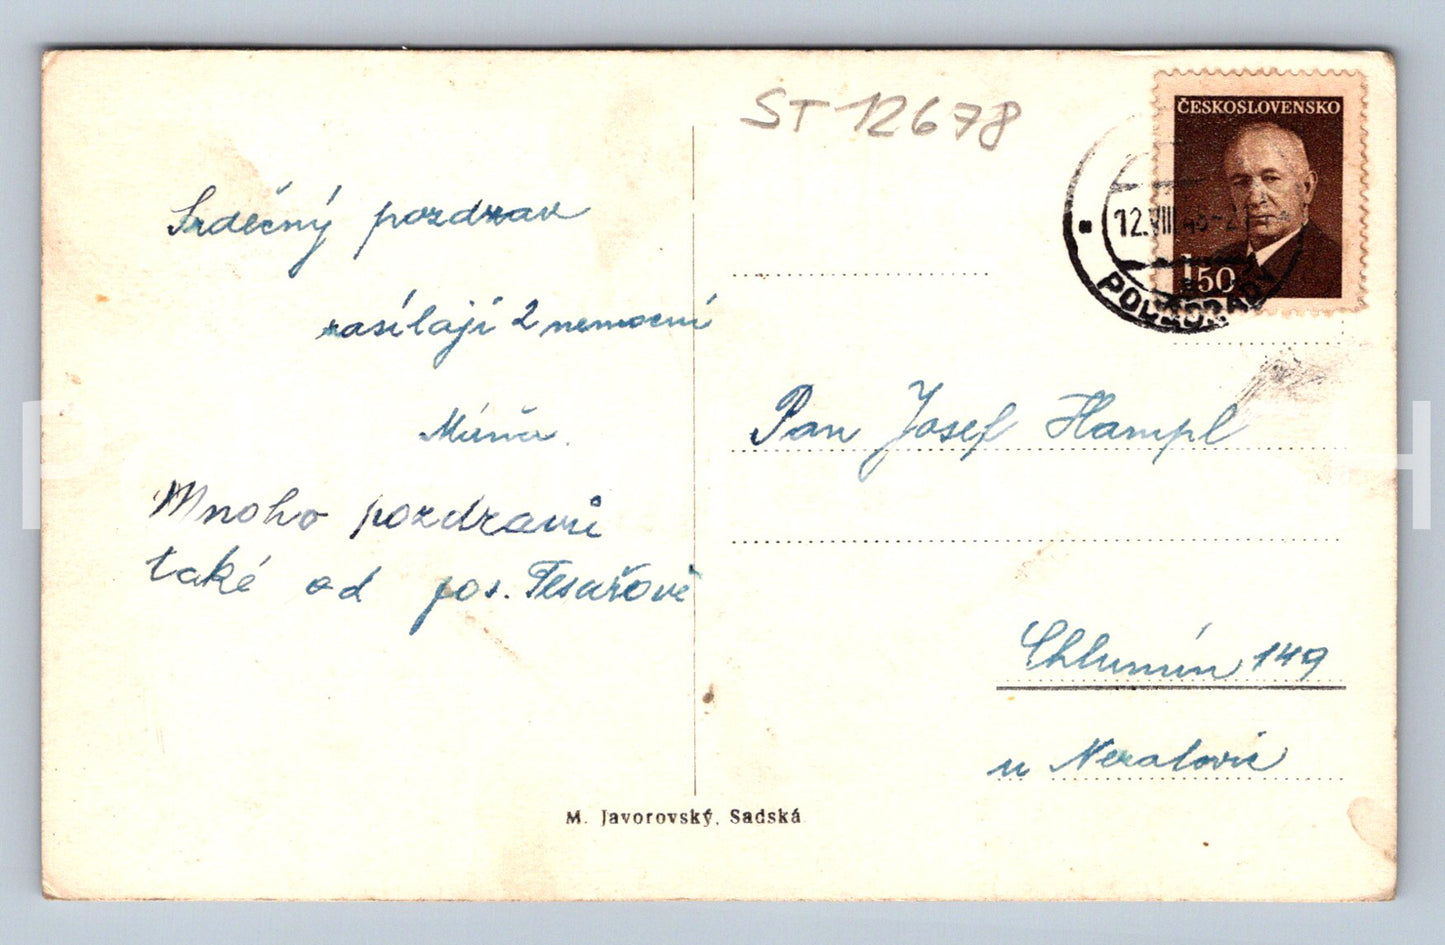 ST 12678
ČESKOSLOVENSKO
12.VIII
1.50
PODĚBRADY
Srdečný pozdrav
zasílají 2 nemocní
Múňa.
Mnoho pozdravů
také od pos. Tesařové
Pan Josef Hampl
Chlumín 149
u Neratovic
M. Javorovský, Sadská